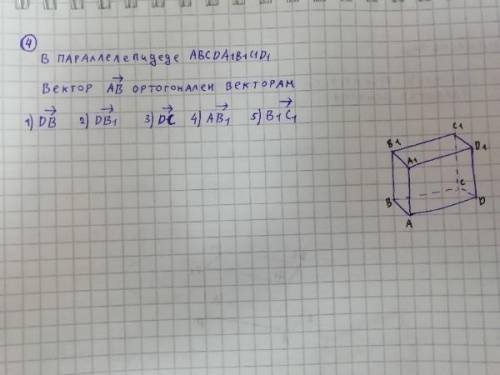 4
В ПАРАЛЛЕЛЕПИДЕДЕ ABCDA1B1C1D1
ВЕКТОР AB ОРТОГОНАЛЕН ВЕКТОРАМ
1) DB 2) DB1 3) DC 4) AB1 5) B1C1
C1
B1
D1
A1
C
B
D
A